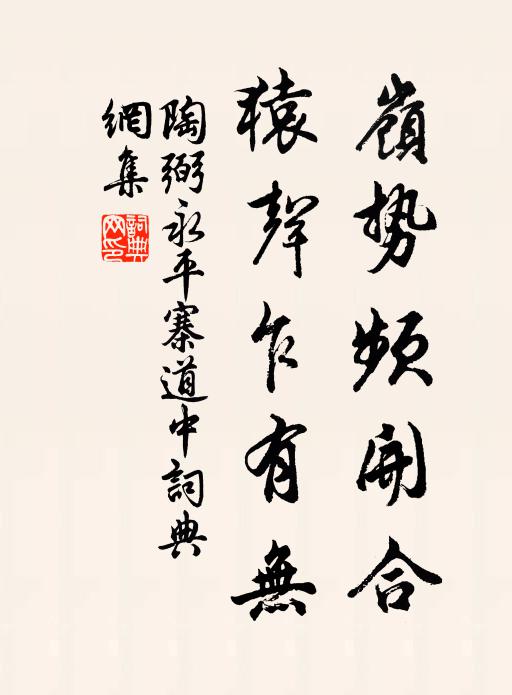 嶺勢頻開合
猿聲乍有無
陶弼永平寨道中詞典
網集
詞典
网印